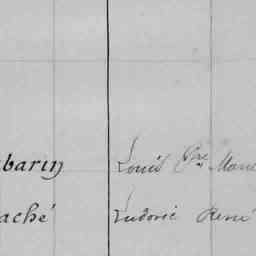 barin Louis Pre Marie
aché Ludovic René